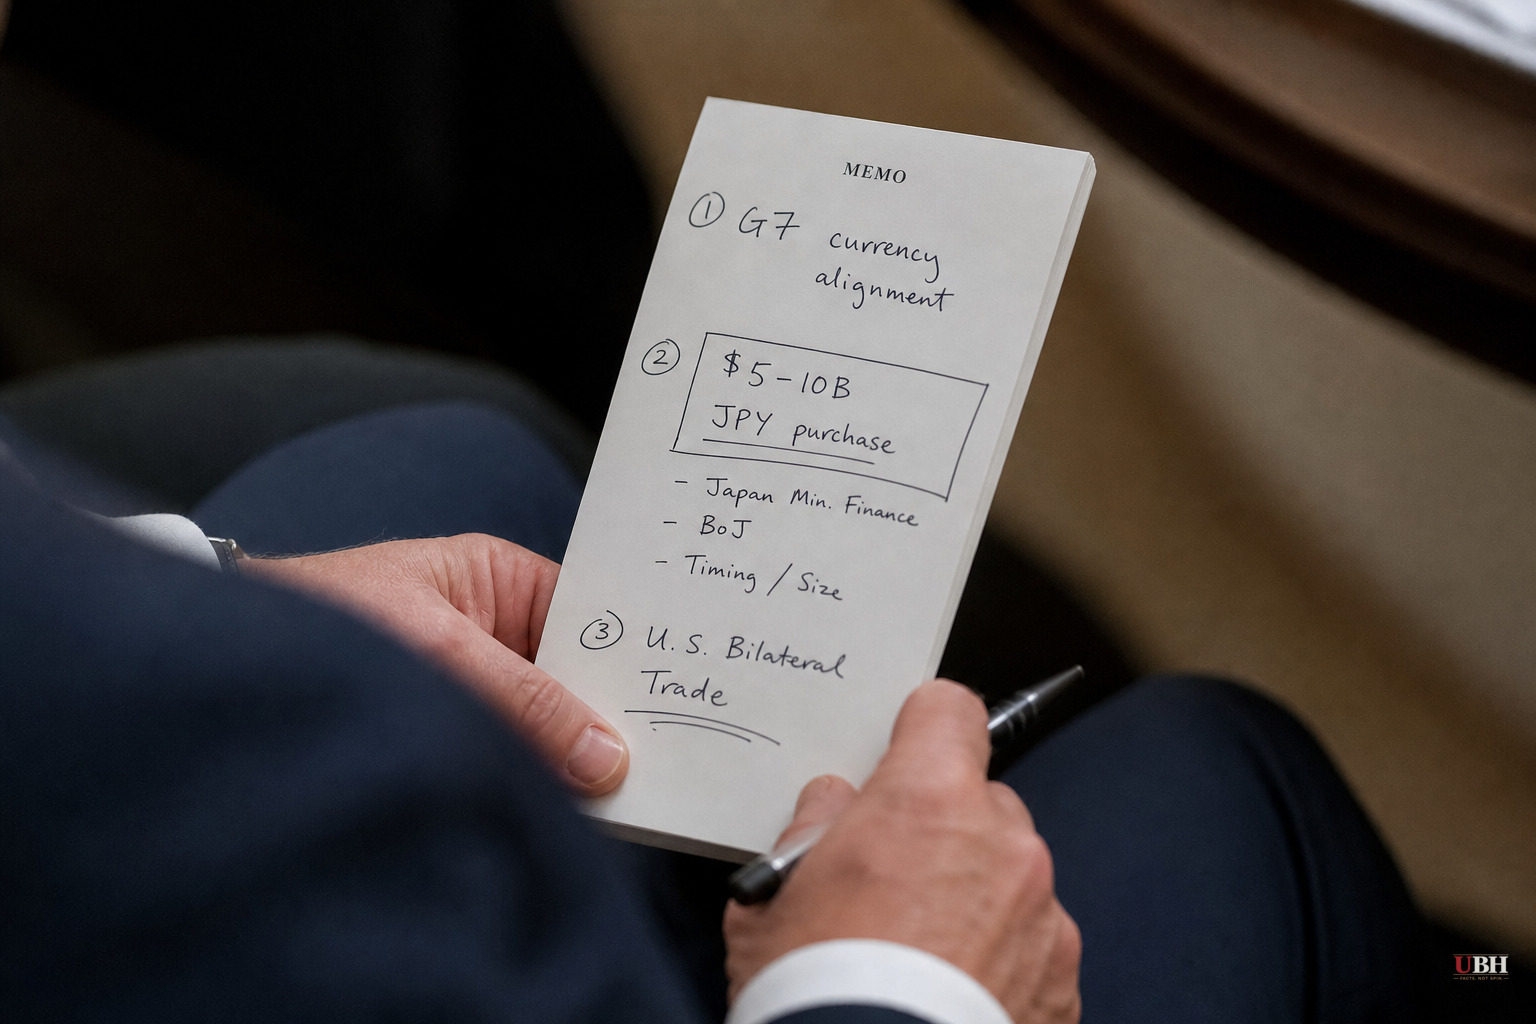 MEMO
① G7 currency
alignment
② $5-10B
JPY purchase
- Japan Min. Finance
- BoJ
- Timing / Size
③ U.S. Bilateral
Trade
UBH
FACTS. NOT SPIN.